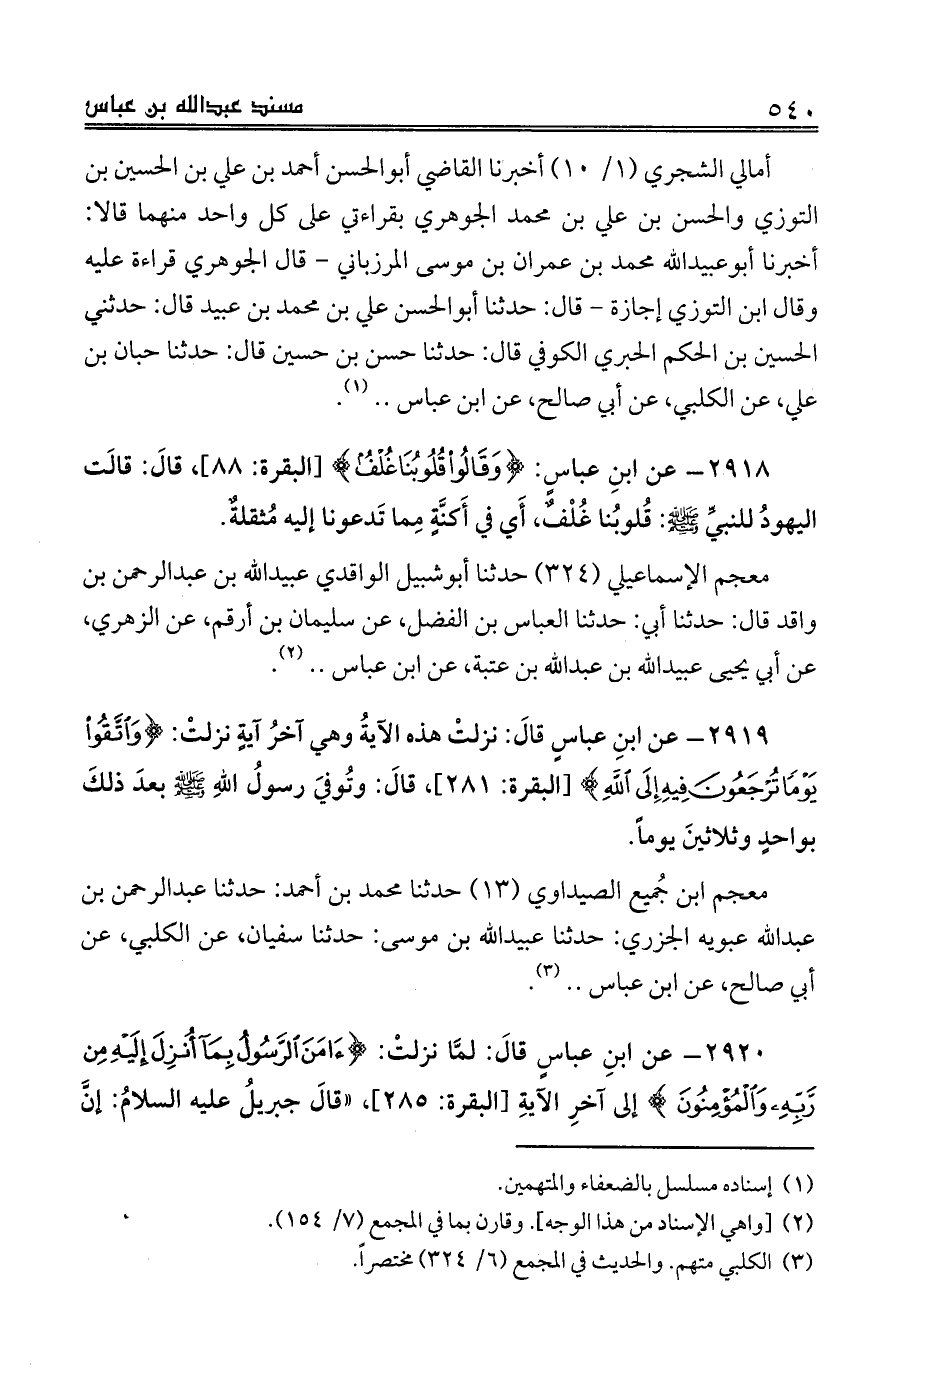 ٥٤٠ مسند عبدالله بن عباس
أمالي الشجري (١/ ١٠) أخبرنا القاضي أبوالحسن أحمد بن علي بن الحسين بن
التوزي والحسن بن علي بن محمد الجوهري بقراءتي على كل واحد منهما قالا:
أخبرنا أبوعبيدالله محمد بن عمران بن موسى المرزباني – قال الجوهري قراءة عليه
وقال ابن التوزي إجازة – قال: حدثنا أبوالحسن علي بن محمد بن عبيد قال: حدثني
الحسين بن الحكم الحبري الكوفي قال: حدثنا حسن بن حسين قال: حدثنا حبان بن
علي، عن الكلبي، عن أبي صالح، عن ابن عباس .. (١).
٢٩١٨– عن ابنِ عباسٍ: ﴿وَقَالُواْ قُلُوبُنَا غُلْفٌ﴾ [البقرة: ٨٨]، قالَ: قالَت
اليهودُ للنبيِّ ﷺ: قُلوبُنا غُلْفٌ، أَي في أَكنَّةٍ مِما تَدعونا إليه مُثقلةٌ.
معجم الإسماعيلي (٣٢٤) حدثنا أبوشبيل الواقدي عبيدالله بن عبدالرحمن بن
واقد قال: حدثنا أبي: حدثنا العباس بن الفضل، عن سليمان بن أرقم، عن الزهري،
عن أبي يحيى عبيدالله بن عبدالله بن عتبة، عن ابن عباس .. (٢).
٢٩١٩– عن ابنِ عباسٍ قالَ: نزلتْ هذه الآيةُ وهي آخرُ آيةٍ نزلتْ: ﴿وَٱتَّقُواْ
يَوْمًا تُرْجَعُونَ فِيهِ إِلَى ٱللَّهِ﴾ [البقرة: ٢٨١]، قالَ: وتُوفيَ رسولُ اللهِ ﷺ بعدَ ذلكَ
بواحدٍ وثلاثينَ يوماً.
معجم ابن جُميع الصيداوي (١٣) حدثنا محمد بن أحمد: حدثنا عبدالرحمن بن
عبدالله عبويه الجزري: حدثنا عبيدالله بن موسى: حدثنا سفيان، عن الكلبي، عن
أبي صالح، عن ابن عباس .. (٣).
٢٩٢٠– عن ابنِ عباسٍ قالَ: لمَّا نزلتْ: ﴿ءَامَنَ ٱلرَّسُولُ بِمَآ أُنزِلَ إِلَيْهِ مِن
رَّبِّهِۦ وَٱلْمُؤْمِنُونَ﴾ إلى آخرِ الآيةِ [البقرة: ٢٨٥]، «قالَ جبريلُ عليه السلامُ: إنَّ
(١) إسناده مسلسل بالضعفاء والمتهمين.
(٢) [واهي الإسناد من هذا الوجه]. وقارن بما في المجمع (٧/ ١٥٤).
(٣) الكلبي متهم. والحديث في المجمع (٦/ ٣٢٤) مختصراً.